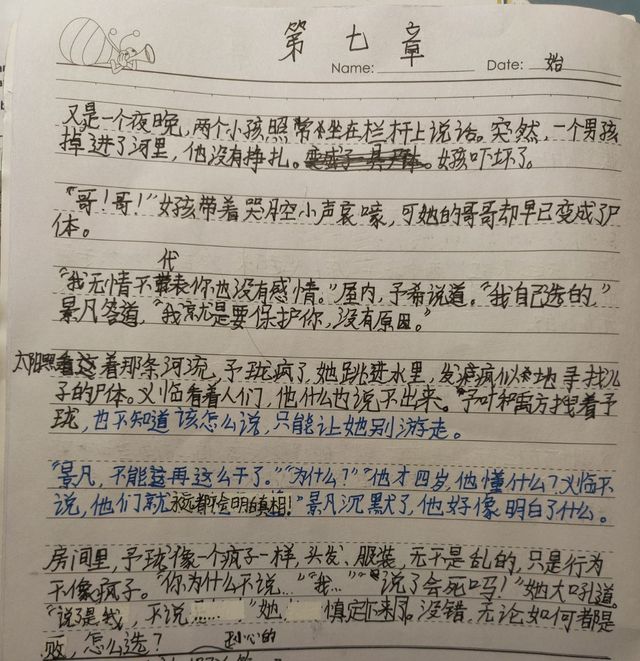 第七章
Name: Date: 始
又是一个夜晚，两个小孩照常坐在栏杆上说话。突然，一个男孩
掉进了河里，他没有挣扎。女孩吓坏了。
“哥！哥！”女孩带着哭腔小声哀嚎，可她的哥哥却早已变成了尸
体。
代
“我无情不表你也没有感情。”屋内，予希说道。“我自己选的，”
景凡答道，“我就是要保护你，没有原因。”
太阳照着那条河流，予珑疯了，她跳进水里，发疯似地寻找儿
子的尸体。义临看着人们，他什么也说不出来。予叶和禹方拽着予
珑，也不知道该怎么说，只能让她别游走。
“景凡，不能再这么干了。”“为什么？”“他才四岁，他懂什么？义临不
说，他们就永远都不会明白真相！”景凡沉默了，他好像明白了什么。
房间里，予珑像一个疯子一样，头发、服装，无不是乱的，只是行为
不像疯子。“你为什么不说……”“我……”“说了会死吗！”她大吼道。
“说了是我，不说……”她 慎定下来了。没错，无论如何都是
败，怎么选？